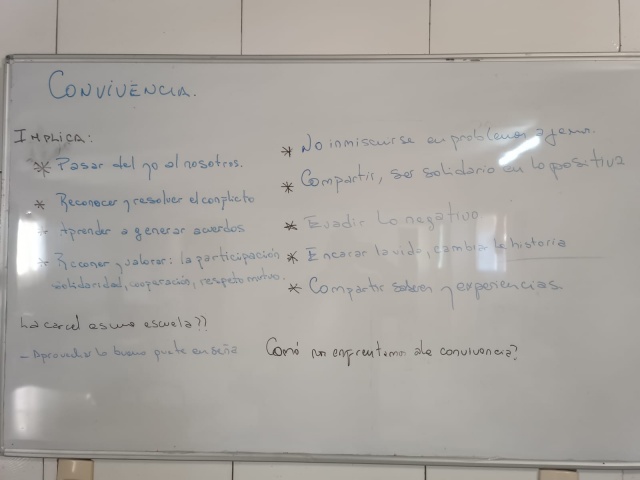 CONVIVENCIA.
IMPLICA:
* Pasar del yo al nosotros.
* Reconocer y resolver el conflicto
* Aprender a generar acuerdos
* Reconer y valorar: la participación
solidaridad, cooperación, respeto mutuo.
La carcel es una escuela??
- Aprovechar lo bueno que te enseña
* No inmiscuirse en problemas ajenos.
* Compartir, ser solidario en lo positivo
* Evadir lo negativo
* Encarar la vida, cambiar la historia
* Compartir saberes y experiencias.
Como nos enfrentamos a la convivencia?